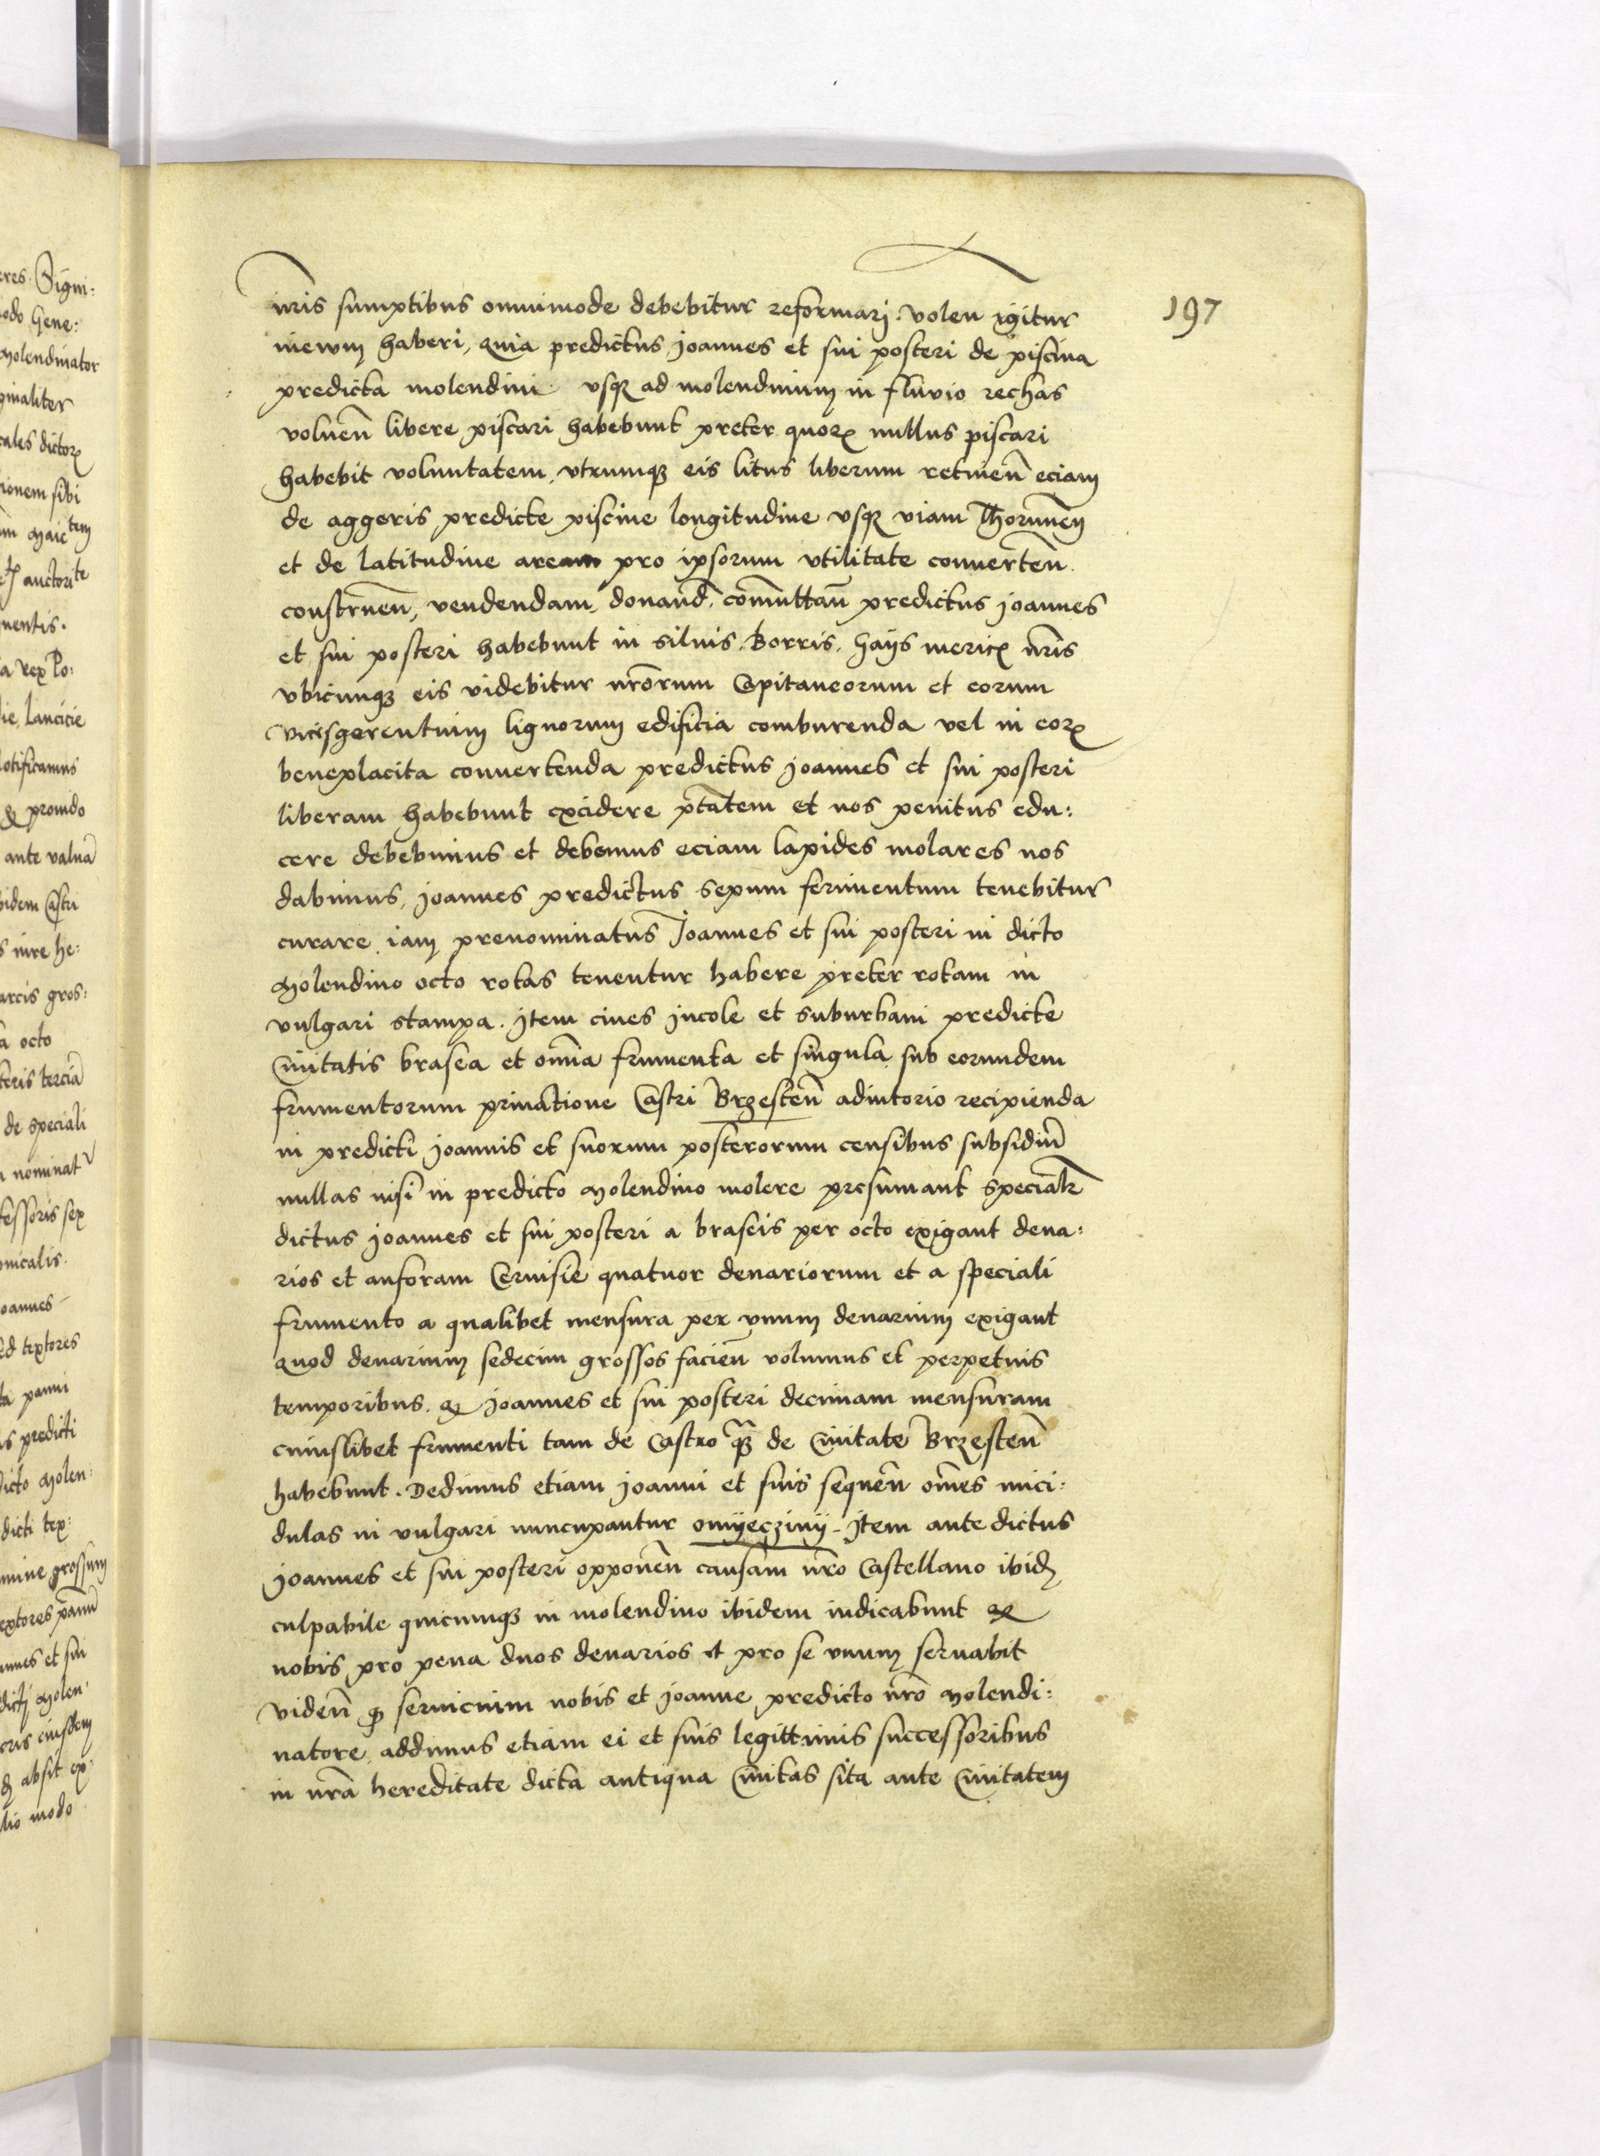 197
nr̄is sumptibus omnimode debebitur reformarj. volen igitur
haberi, quia predictus joannes et sui posteri de piscina
predicta molendini vsq̄ ad molendinum in fluvio rechas
volueñ libere piscari habebunt preter quorꝝ nullus piscari
habebit voluntatem, vtrumqꝫ eis litus liberum retineñ eciam
de aggeris predicte piscine longitudine vsqꝫ viam Thorunneñ
et de latitudine aream pro ipsorum vtilitate conuerteñ
construeñ, vendendam, donand̄, com̄ittañ predictus joannes
et sui posteri habebunt in siluis. Borris. haijs mericꝫ nr̄is
vbicunqꝫ eis videbitur nr̄orum Capitaneorum et eorum
vicesgerentium lignorum edificia comburenda vel in eorꝝ
beneplacita conuertenda predictus joannes et sui posteri
liberam habebunt excidere ptātem et nos penitus edu:
cere debebimus et debemus eciam lapides molares nos
dabimus, joannes predictus sepum ferrmentum tenebitur
curare iam prenominatus Joannes et sui posteri in dicto
Molendino octo rotas tenentur habere preter rotam in
vulgari stampa. Jtem ciues jncole et suburbani predicte
Ciuitatis brasea et om̄ia frumenta et singula sub eorundem
frumentorum priuatione Castri Brzesteñ adiutorio recipienda
in predicti joannis et suorum posterorum censibus subsidiū
nullas nisi in predicto Molendino molere presumant specialr̄
dictus joannes et sui posteri a braseis per octo exigant dena:
rios et anforam Ceruisie quatuor denariorum et a speciali
frumento a qualibet mensura per vnum denarium exigant
quod denarium sedecim grossos facieñ volumus et perpetuis
temporibus. qꝫ joannes et sui posteri decimam mensuram
cuiuslibet frumenti tam de Castro qꝫ de Ciuitate Brzesteñ
habebunt. Dedimus etiam joanni et suis sequeñ om̄es mici:
dulas in vulgari nuncupantur omijeczinij. Jtem ante dictus
joannes et sui posteri opponeñ causam nr̄o Castellano ibidꝫ
culpabile quicunqꝫ in molendino ibidem iudicabunt qꝫ
nobis pro pena duos denarios et pro se vnum seruabit
videñ ꝙ seruicium nobis et joanne predicto nr̄o Molendi:
natore addimus etiam ei et suis legittimis successoribus
in nr̄a hereditate dicta antiqua Ciuitas sita ante Ciuitatem